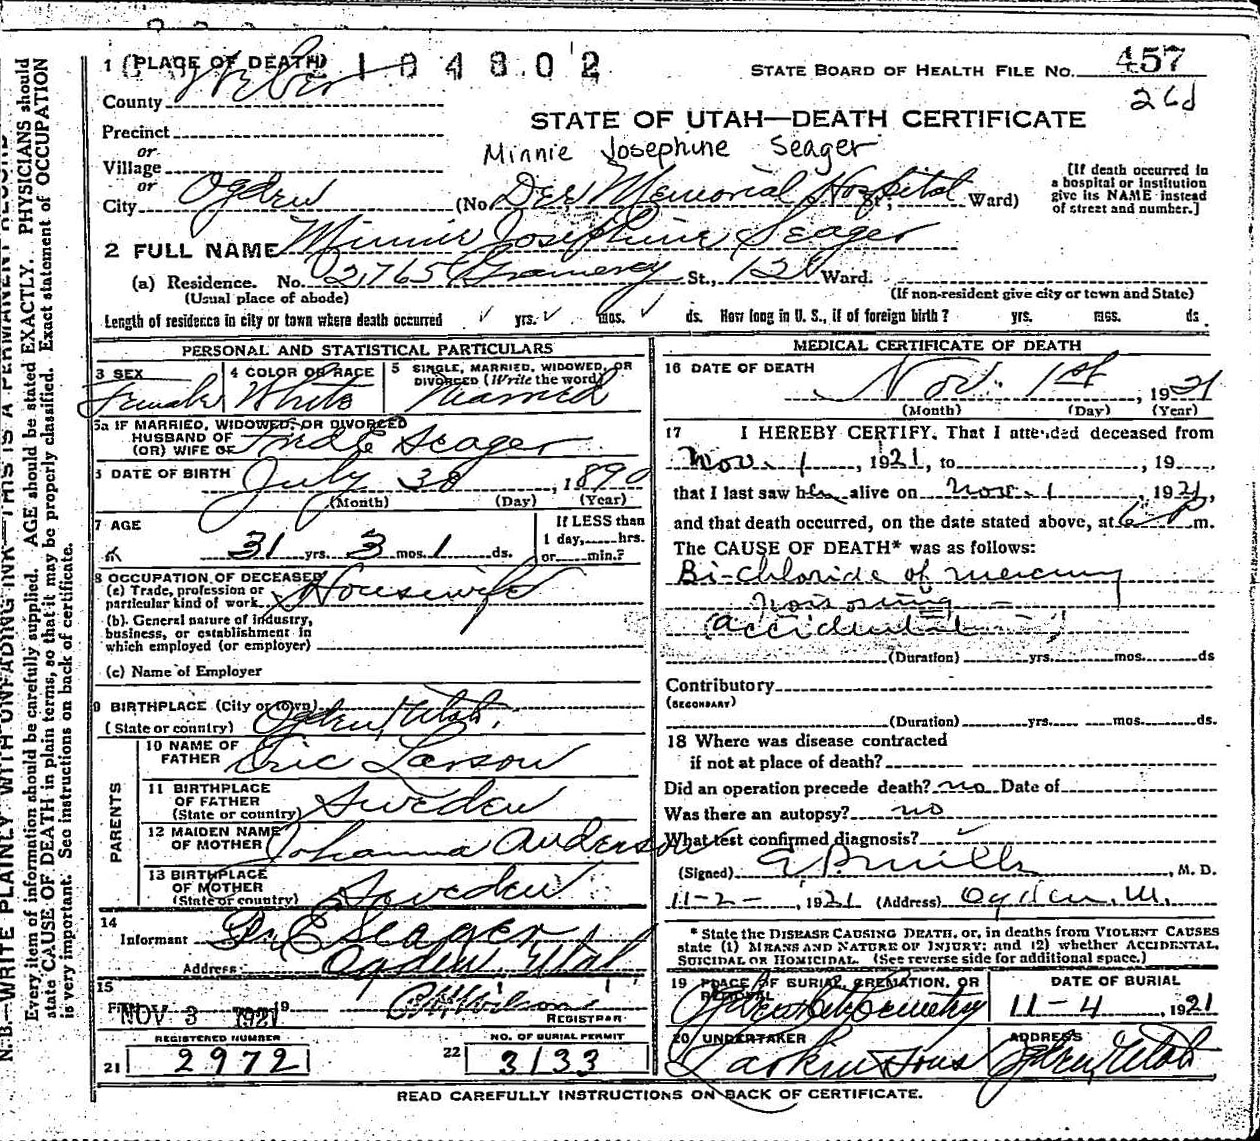 1 PLACE OF DEATH 104802
STATE BOARD OF HEALTH FILE No. 457
County Weber
26d
STATE OF UTAH—DEATH CERTIFICATE
Precinct
or
Minnie Josephine Seager
Village
or
City Ogden (No. Dee Memorial Hospital St; Ward)
[If death occurred in a hospital or institution give its NAME instead of street and number.]
2 FULL NAME Minnie Josephine Seager
(a) Residence. No. 2765 Gramercy St., Ward.
(Usual place of abode) (If non-resident give city or town and State)
Length of residence in city or town where death occurred yrs. mos. ds. How long in U. S., if of foreign birth? yrs. mos. ds.
PERSONAL AND STATISTICAL PARTICULARS
3 SEX Female
4 COLOR OR RACE White
5 SINGLE, MARRIED, WIDOWED, OR DIVORCED (Write the word) Married
5a IF MARRIED, WIDOWED, OR DIVORCED
HUSBAND OF
(OR) WIFE OF Fred E Seager
6 DATE OF BIRTH July 30, 1890
(Month) (Day) (Year)
7 AGE 31 yrs. 3 mos. 1 ds.
If LESS than
1 day, hrs.
or min.?
8 OCCUPATION OF DECEASED
(a) Trade, profession or
particular kind of work Housewife
(b). General nature of industry,
business, or establishment in
which employed (or employer)
(c) Name of Employer
9 BIRTHPLACE (City or town)
(State or country) Ogden, Utah.
PARENTS
10 NAME OF
FATHER Eric Larson
11 BIRTHPLACE
OF FATHER
(State or country) Sweden
12 MAIDEN NAME
OF MOTHER Johanna Anderson
13 BIRTHPLACE
OF MOTHER
(State or country) Sweden
14
Informant E Seager
Address: Ogden, Utah
15
NOV 3 1921 19 Wilson
REGISTRAR
REGISTERED NUMBER
21 2972
NO. OF BURIAL PERMIT
22 3133
MEDICAL CERTIFICATE OF DEATH
16 DATE OF DEATH
Nov. 1st, 1921
(Month) (Day) (Year)
17 I HEREBY CERTIFY, That I attended deceased from
Nov. 1, 1921, to , 19 ,
that I last saw her alive on Nov. 1, 1921,
and that death occurred, on the date stated above, at 6 P m.
The CAUSE OF DEATH* was as follows:
Bi-chloride of mercury
poisoning —
(accidental)
(Duration) yrs. mos. ds
Contributory
(SECONDARY)
(Duration) yrs. mos. ds.
18 Where was disease contracted
if not at place of death?
Did an operation precede death? no Date of
Was there an autopsy? no
What test confirmed diagnosis?
(Signed) Mills, M. D.
11-2-, 1921 (Address) Ogden, U.
* State the DISEASE CAUSING DEATH, or, in deaths from VIOLENT CAUSES
state (1) MEANS AND NATURE OF INJURY; and (2) whether ACCIDENTAL,
SUICIDAL OR HOMICIDAL. (See reverse side for additional space.)
19 PLACE OF BURIAL, CREMATION, OR
REMOVAL Ogden City Cemetery
DATE OF BURIAL
11-4, 1921
20 UNDERTAKER
Larkin & Sons
ADDRESS
Ogden, Utah
READ CAREFULLY INSTRUCTIONS ON BACK OF CERTIFICATE.
N.B.—WRITE PLAINLY WITH UNFADING INK—THIS IS A PERMANENT RECORD
Every item of information should be carefully supplied. AGE should be stated EXACTLY. PHYSICIANS should
state CAUSE OF DEATH in plain terms, so that it may be properly classified. Exact statement of OCCUPATION
is very important. See instructions on back of certificate.